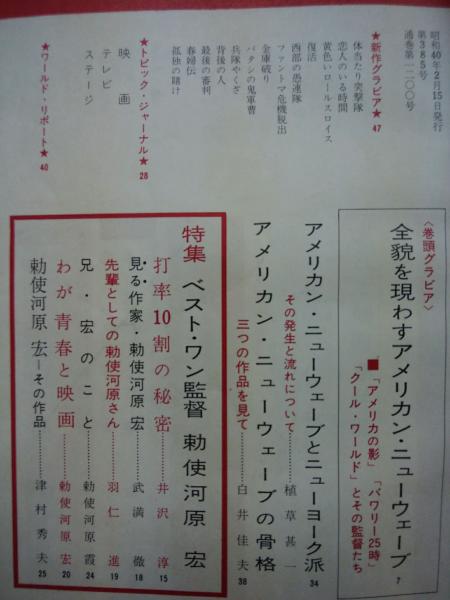 昭和40年2月15日発行
第385号
通巻第一二〇〇号
★新作グラビア★ 47
体当たり突撃隊
恋人のいる時間
黄色いロールスロイス
復活
西部の愚連隊
ファントマ危機脱出
金庫破り
バタシの鬼軍曹
兵隊やくざ
背後の人
最後の審判
春婦伝
孤独の賭け
★トピック・ジャーナル★ 28
映画
テレビ
ステージ
★ワールド・リポート★ 40
〈巻頭グラビア〉
全貌を現わすアメリカン・ニューウェーブ 7
■「アメリカの影」「バワリー25時」
「クール・ワールド」とその監督たち
アメリカン・ニューウェーブとニューヨーク派
その発生と流れについて………植草甚一 34
アメリカン・ニューウェーブの骨格
三つの作品を見て………白井佳夫 38
特集 ベスト・ワン監督 勅使河原 宏
打率10割の秘密………井沢 淳 15
見る作家・勅使河原宏………武満 徹 18
先輩としての勅使河原さん………羽仁 進 19
兄・宏のこと………勅使河原霞 24
わが青春と映画………勅使河原宏 20
勅使河原 宏―その作品………津村秀夫 25